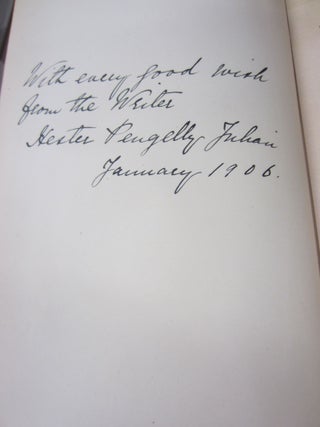 With every good wish
from the Writer
Hester Pengelly Julian
January 1906.